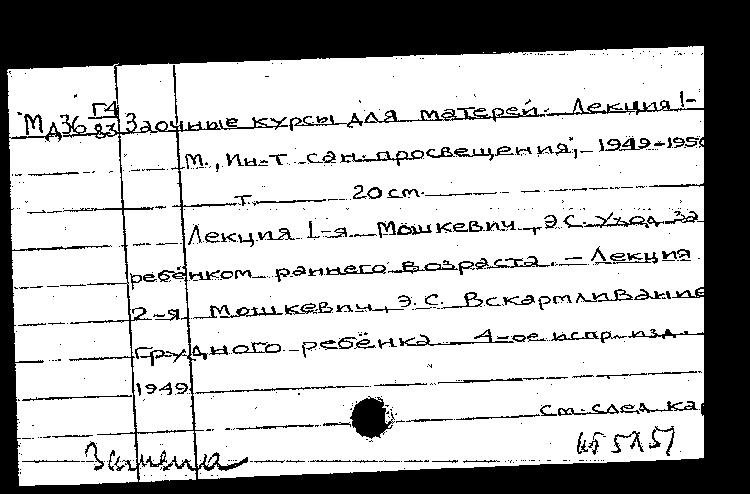 Мд36 Г4/83 Заочные курсы для матерей. Лекция 1-
М., Ин-т сан. просвещения, 1949-1950
т. 20 cm.
Лекция 1-я Мошкевич, Э.С. Уход за
ребёнком раннего возраста. — Лекция
2-я Мошкевич, Э.С. Вскармливание
грудного ребёнка 4-ое испр. изд.
1949
См. след. кар
Замена